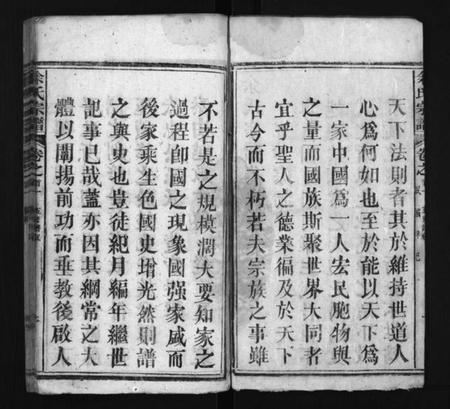 天下法則者其於維持世道人
心為何如也至於能以天下為
一家中國為一人宏民胞物與
之量而國族斯聚世界大同者
宜乎聖人之德業徧及於天下
古今而不朽若夫宗族之事雖
不若是之規模濶大要知家之
過程即國之現象國强家盛而
後家乘生色國史增光然則譜
之與史也豈徒紀月編年繼世
記事已哉蓋亦因其綱常之大
體以闡揚前功而垂教後啟人
余氏宗譜